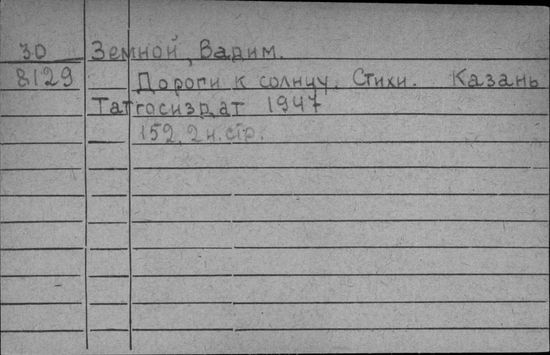 30 Земной, Вадим.
8129 Дороги к солнцу. Стихи. Казань
Татгосиздат 1947
152, 2 н. стр.